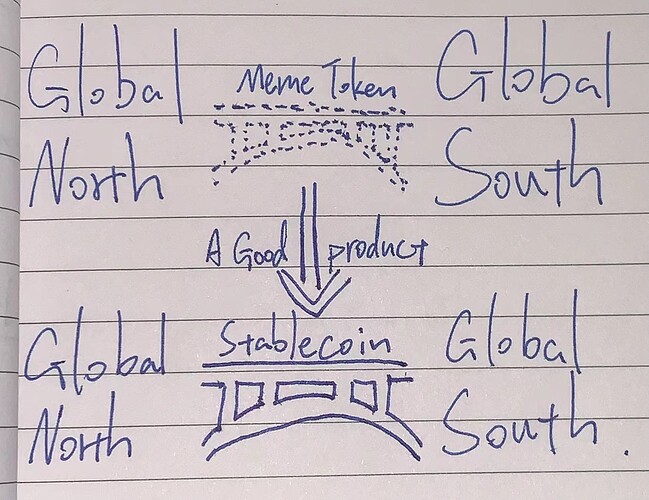 Global Meme Token Global
North South
A Good product
Global Stablecoin Global
North South.